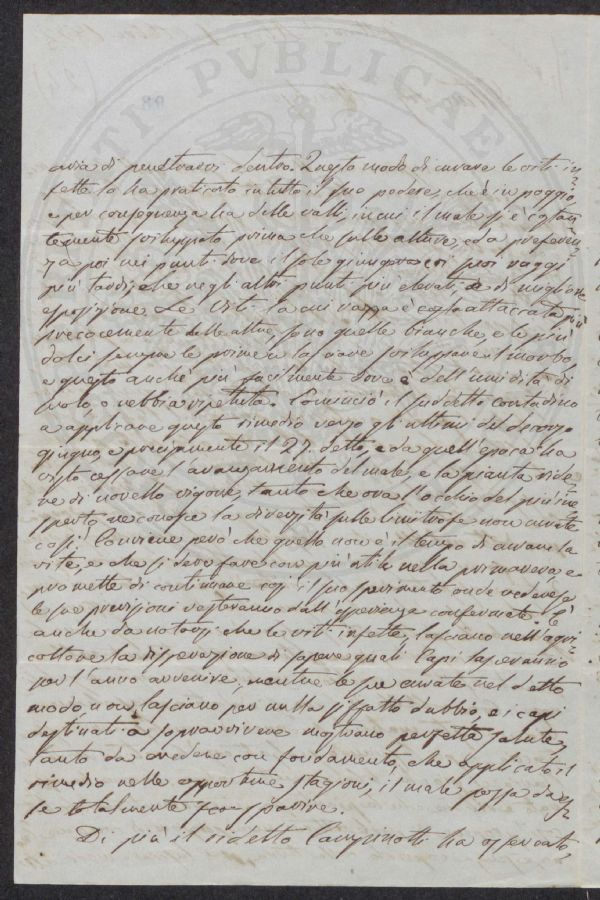 TI PVBLICAE
98
aria di penetrarvi dentro. Questo modo di curare le viti in=
fette lo ha praticato in tutto il suo podere, che è in poggio,
e per conseguenza ha delle valli, in cui il male si è costan=
temente sviluppato prima che sulle alture, ed a preferen=
za poi nei punti dove il sole giunge coi suoi raggi
più tardi, che negli altri punti più elevati e di migliore
esposizione. Le viti la cui razza è costo attaccata più
precocemente delle altre, sono quelle bianche, e le più
dolci sempre le prime a lasciare sviluppare il morbo,
e questo anche più facilmente dove è dell'umidità di
suolo, o nebbia ripetuta. Cominciò il suddetto contadino
a applicare questo rimedio verso gli ultimi del decorso
giugno, e precisamente il 27. detto, e da quell'epoca ha
visto cessare l'avanzamento del male, e la pianta ride=
re di novello vigore, tanto che ora l'occhio del più ine=
sperto ne conosce la diversità sulle limitrofe non curate
così. Conviene però che quello non è il tempo di curare la
vite, e che si deve fare con più utile nella primavera, e
promette di continuare così il suo sperimento onde vedere se
le sue previsioni resteranno dall'esperienza confermate. È
anche da notarsi che le viti infette, lasciano nell'agri=
coltore la disperazione di sapere quali capi lasceranno
per l'anno avvenire, mentre le sue curate nel detto
modo non lasciano per nulla siffatto dubbio, e i capi
destinati a sopravvivere mostrano perfetta salute,
tanto da credere con fondamento, che applicato il
rimedio nelle opportune stagioni, il male possa da se
se totalmente scomparire.
Di più il sidetto Campinotti ha osservato,